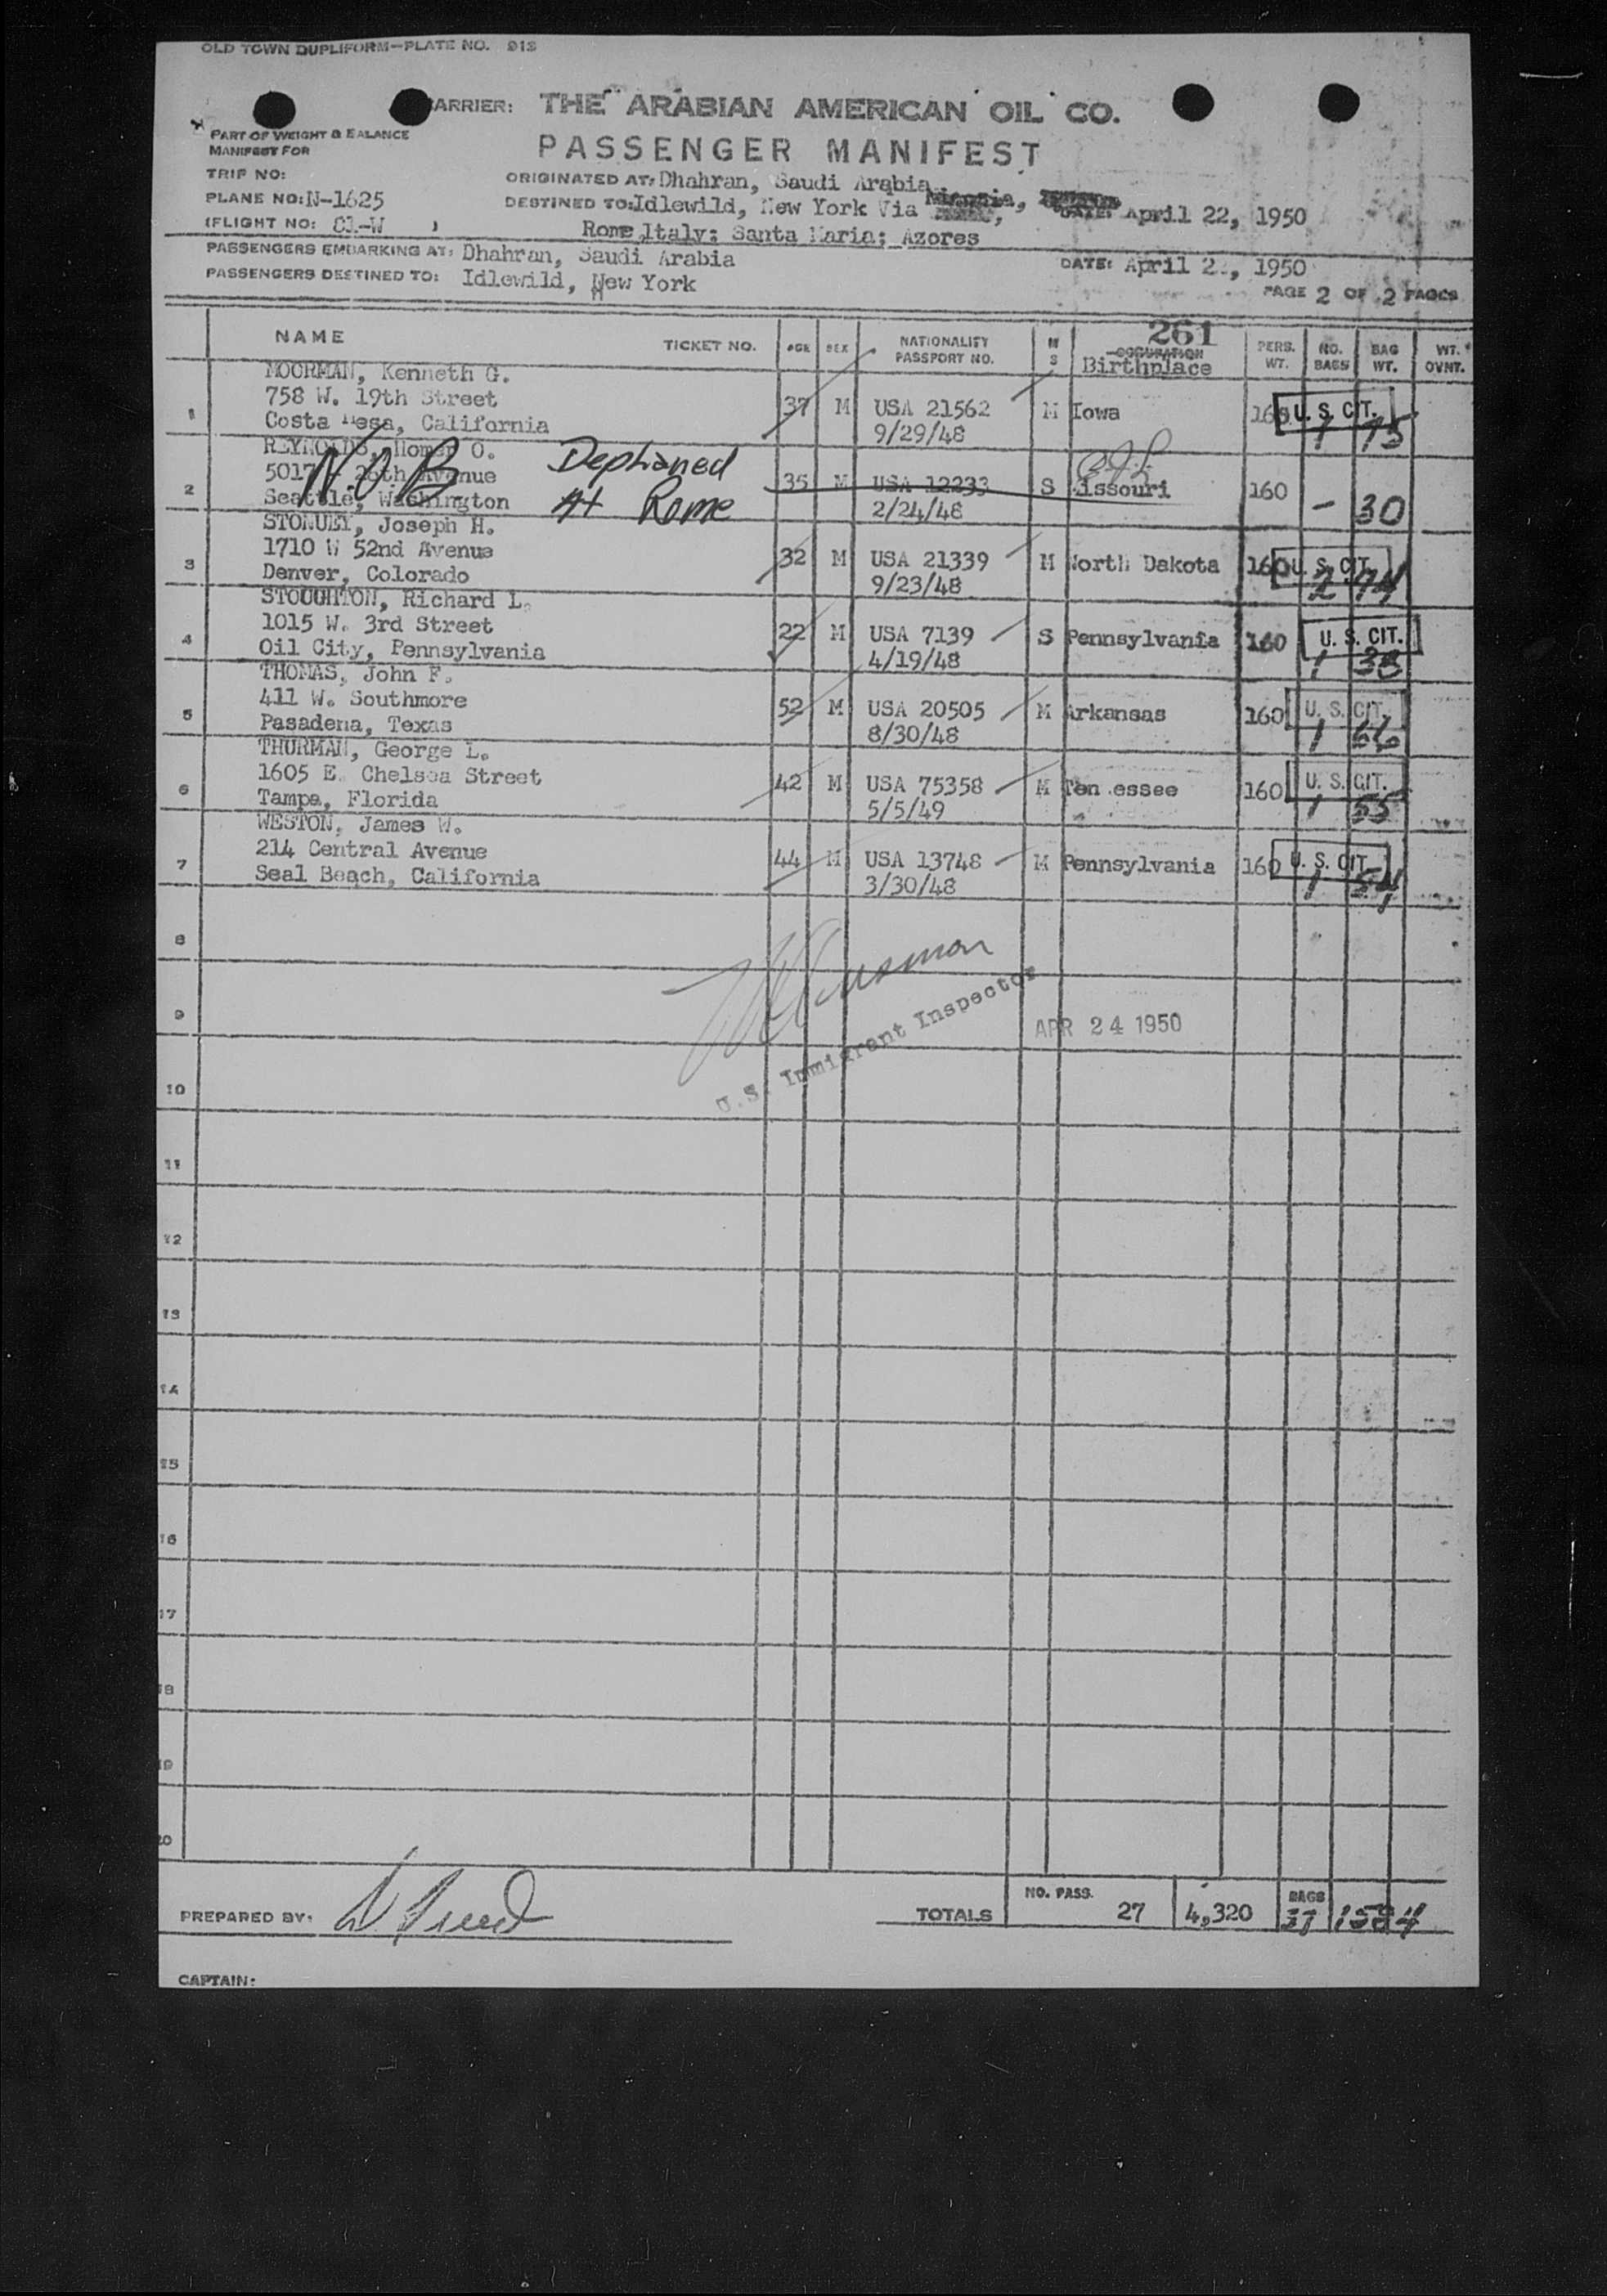 OLD TOWN DUPLIFORM—PLATE NO. 913
CARRIER: THE ARABIAN AMERICAN OIL CO.
PART OF WEIGHT & BALANCE
MANIFEST FOR
PASSENGER MANIFEST
TRIP NO:
ORIGINATED AT: Dhahran, Saudi Arabia
PLANE NO: N-1625
DESTINED TO: Idlewild, New York Via
DATE: April 22, 1950
(FLIGHT NO: 81-W )
Rome, Italy; Santa Maria; Azores
PASSENGERS EMBARKING AT: Dhahran, Saudi Arabia
DATE: April 2 , 1950
PASSENGERS DESTINED TO: Idlewild, New York
PAGE 2 OF 2 PAGES
261
NAME TICKET NO. AGE SEX NATIONALITY PASSPORT NO. M S OCCUPATION Birthplace PERS. WT. NO. BAGS BAG WT. WT. OVNT.
MOORMAN, Kenneth G.
758 W. 19th Street
1 37 M USA 21562 M Iowa 160 U. S. CIT.
Costa Mesa, California 9/29/48 1 75
REYNOLDS, Homer O.
N.O.B Deplaned
5017 28th Avenue
2 35 M USA 12233 S Missouri 160
Seattle, Washington At Rome 2/24/48 - 30
STONUEY, Joseph H.
1710 W 52nd Avenue
3 32 M USA 21339 M North Dakota 160 U. S. CIT.
Denver, Colorado 9/23/48 2 74
STOUGHTON, Richard L.
1015 W. 3rd Street
4 22 M USA 7139 S Pennsylvania 160 U. S. CIT.
Oil City, Pennsylvania 4/19/48 1 38
THOMAS, John F.
411 W. Southmore
5 52 M USA 20505 M Arkansas 160 U. S. CIT.
Pasadena, Texas 8/30/48 1 66
THURMAN, George L.
1605 E. Chelsea Street
6 42 M USA 75358 M Ten essee 160 U. S. CIT.
Tampa, Florida 5/5/49 1 55
WESTON, James W.
214 Central Avenue
7 44 M USA 13748 M Pennsylvania 160 U. S. CIT.
Seal Beach, California 3/30/48 1 54
8
9
U.S. Immigrant Inspector
APR 24 1950
10
11
12
13
14
15
16
17
18
19
20
PREPARED BY:
TOTALS NO. PASS. 27 4,320 BAGS 37 1584
CAPTAIN: